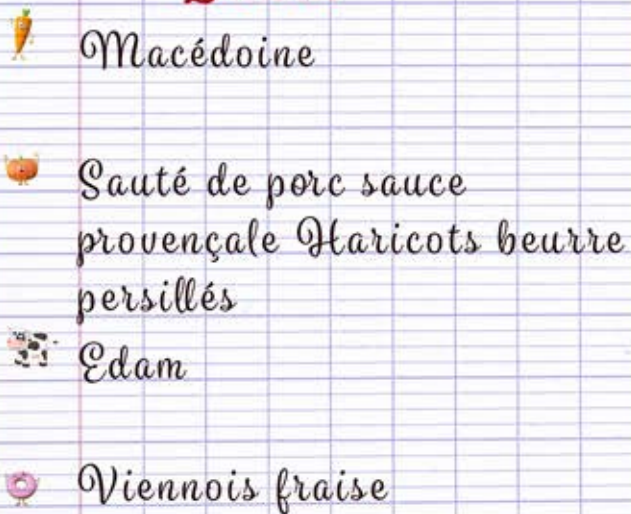 Macédoine
Sauté de porc sauce
provençale Haricots beurre
persillés
Edam
Viennois fraise